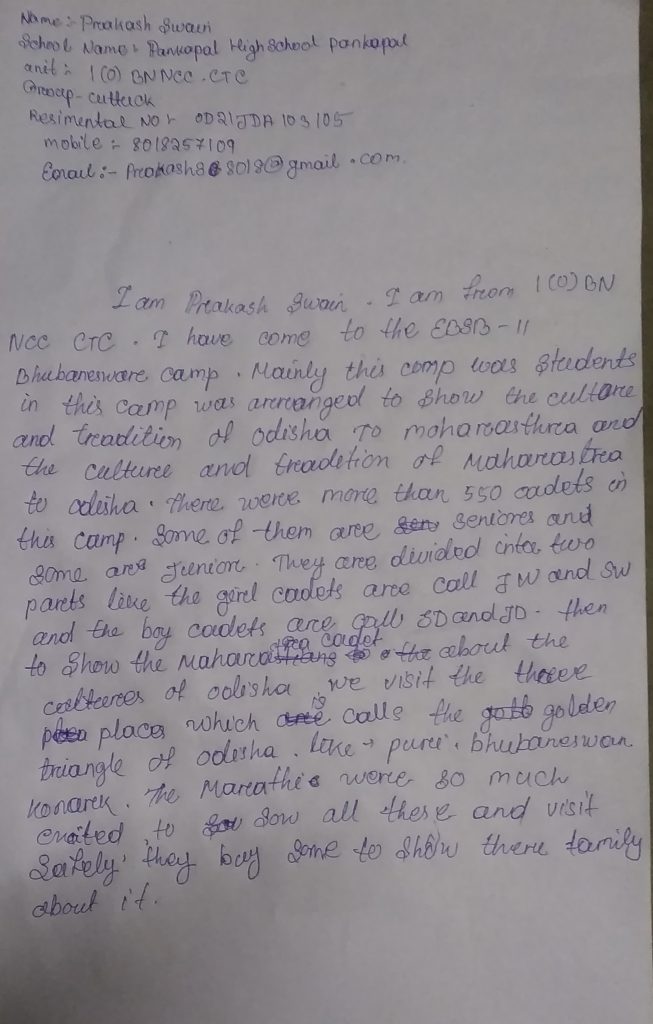 Name :- Preakash Swain
School Name :- Pankapal High School Pankapal
unit :- 1 (0) BN NCC . CTC
Group - cuttuck
Resimental NO :- OD21JDA103105
mobile :- 8018257109
Email :- 8018@gmail . com.
I am Preakash Swain . I am from 1 (0) BN
NCC CTC . I have come to the EBSB - 11
Bhubanesware camp . Mainly this comp was Students
in this camp was arreanged to Show the culture
and treadition of Odisha To moharasthrea and
the culturee and treadetion of Maharcastrea
to odisha . There were more than 550 cadets in
this camp . Some of them aree seniores and
some are Juniore . They are divided intee two
parcts like the girel cadets aree call JW and SW
and the boy cadets are call SD and JD . then
to Show the Maharcastrea cadet about the
cultures of odisha we visit the threee
places which is calls the golden
triangle of odisha . like → purei . bhubaneswar
konarck . The Marcathis were so much
exited to sow all these and visit
Safely . they buy some to Show there family
about it .